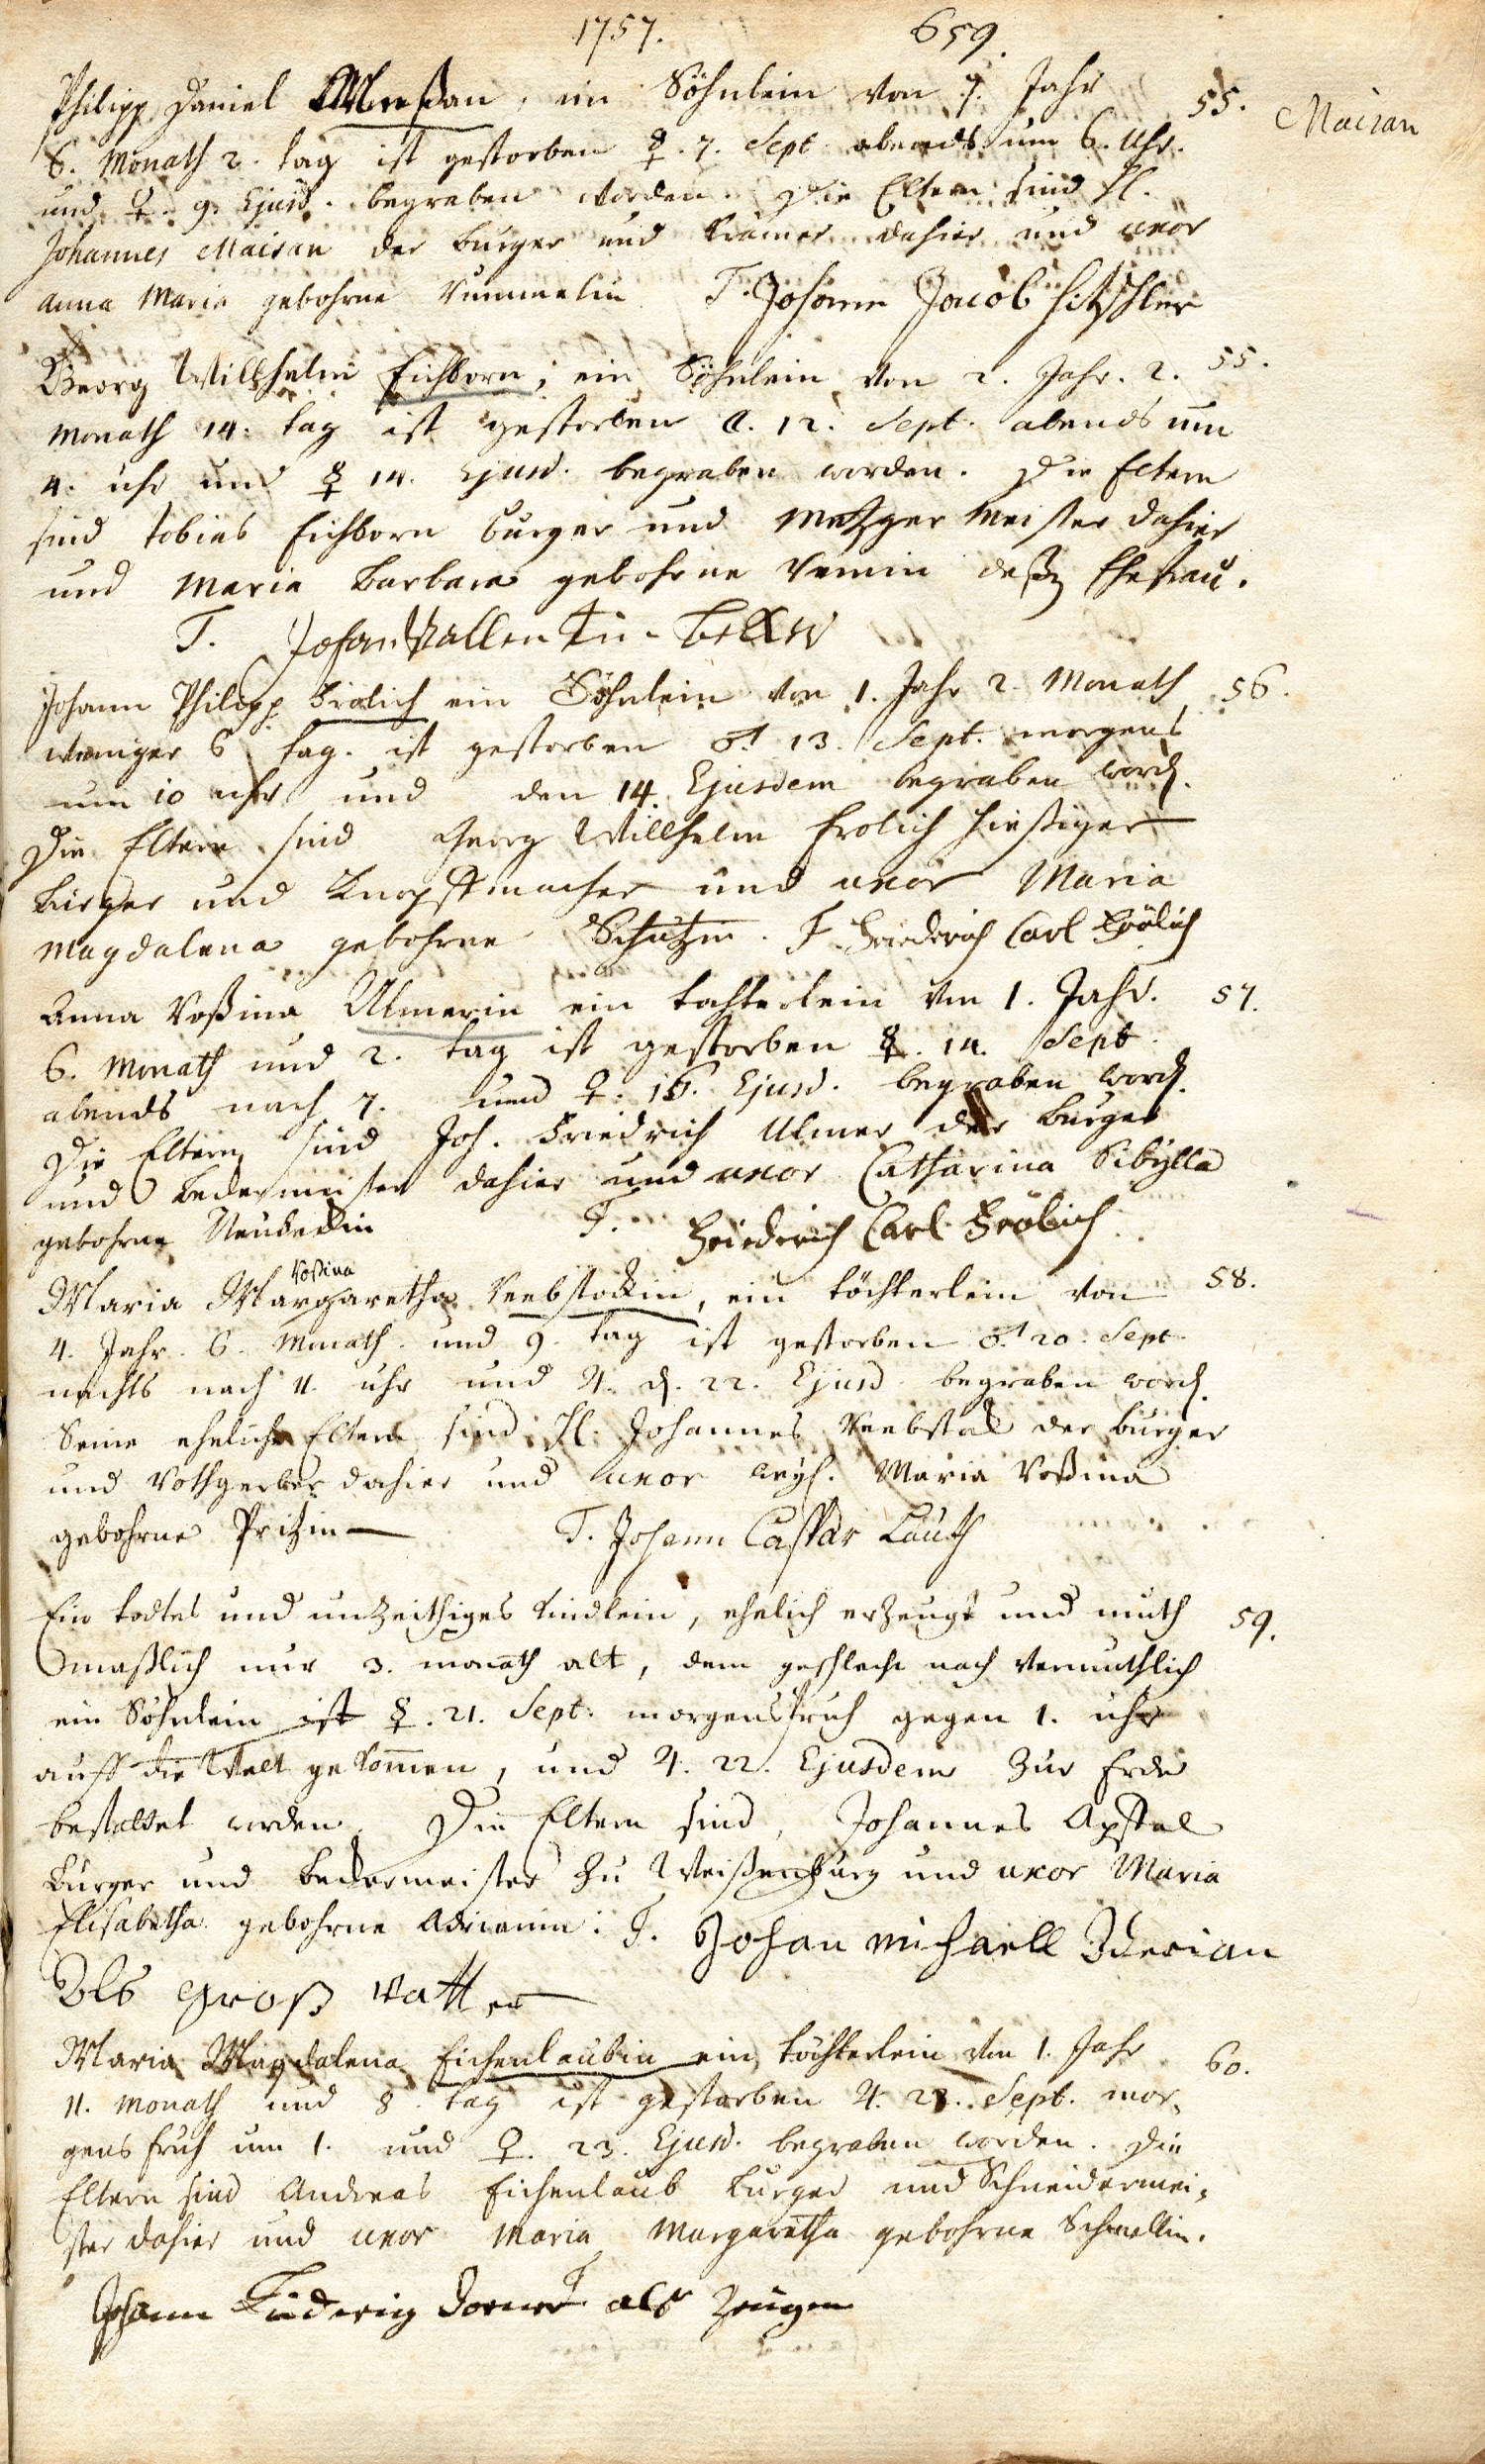 1757. 659.
Philipp Daniel Meßan, ein Söhnlein von 7. Jahr 55. Maisan
6. Monath 2. tag ist gestorben ☿. 7. Sept abends um 6. Uhr.
und ♀. 9. Ejusd. begraben worden. Die Eltern sind H.
Johannes Maisan der burger und Krämer dahier und uxor
Anna Maria gebohrne Kimmelin T. Johann Jacob Hitschler
Georg Willhelm Eichborn, ein Söhnlein von 2. Jahr. 2. 55.
Monath 14. tag ist gestorben ☾. 12. Sept. abends um
4. uhr und ☿ 14. Ejusd. begraben worden. Die Eltern
sind Tobias Eichborn burger und Metzger Meister dahier
und Maria Barbara gebohrne deßen Ehefrau.
T. Johan Vallentin
Johann Philipp Frölich ein Söhnlein von 1. Jahr 2. Monath 56.
weniger 6 tag. ist gestorben ♂. 13. Sept. morgens
um 10 uhr und den 14. Ejusdem begraben word.
Die Eltern sind Georg Willhelm Frolich hießiger
bürger und Knopffmacher und uxor Maria
Magdalena gebohrne Schützin. T. Friederich Carl Frölich
Anna Roßina Ulmerin ein tochterlein von 1. Jahr. 57.
6. Monath und 2. tag ist gestorben ☿. 14. Sept.
abends nach 7. und ♀. 16. Ejusd. begraben word.
Die Eltern sind Joh. Friedrich Ulmer der burger
und bedermeister dahier und uxor Catharina Sibylla
gebohrne T. Friederich Carl Frölich.
Roßina
Maria Margaretha Rebstöckin, ein töchterlein von 58.
4. Jahr. 6. Monath. und 9. tag ist gestorben ♂ 20. Sept.
nachts nach 11. uhr und ♃. d. 22. Ejusd. begraben word.
Seine eheliche Eltern sind H. Johannes Rebstock der burger
und Rothgerber dahier und uxor weyl. Maria Roßina
gebohrne Pritzin T. Johann Caspar Lauth
Ein todtes und unzeithiges kindlein, ehelich erzeugt und muth 59.
maßlich nur 3. monath alt, dem geschlecht nach vermuthlich
ein Söhnlein ist ☿. 21. Sept. morgens fruh gegen 1. uhr
auff die Welt gekommen, und ♃. 22. Ejusdem zur Erde
bestattet worden. Die Eltern sind, Johannes Apffel
burger und bedermeister zu Weißenburg und uxor Maria
Elisabetha gebohrne Adrianin. T. Johan michaell Aderian
Als groß vatter
Maria Magdalena Eichenlaubin ein, töchterlein von 1. Jahr 60.
11. Monath und 8. tag ist gestorben ♃. 22. Sept. mor„
gens fruh um 1. und ♀. 23. Ejusd. begraben worden. Die
Eltern sind Andreas Eichenlaub burger und Schneidermei„
ster dahier und uxor Maria Margaretha gebohrne Schnellin.
T
Johann Ludwig als zeugen